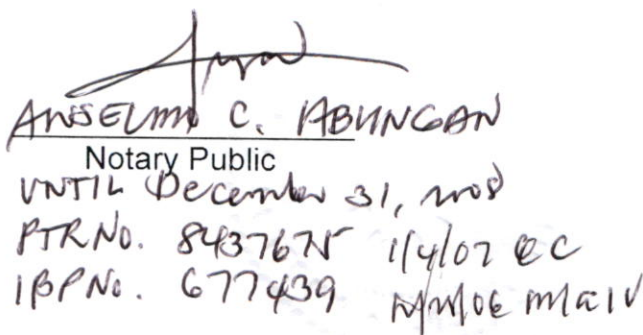 ANSELMO C. ABUNGAN
Notary Public
UNTIL December 31, 2008
PTR No. 8437675 1/4/07 QC
IBP No. 677439